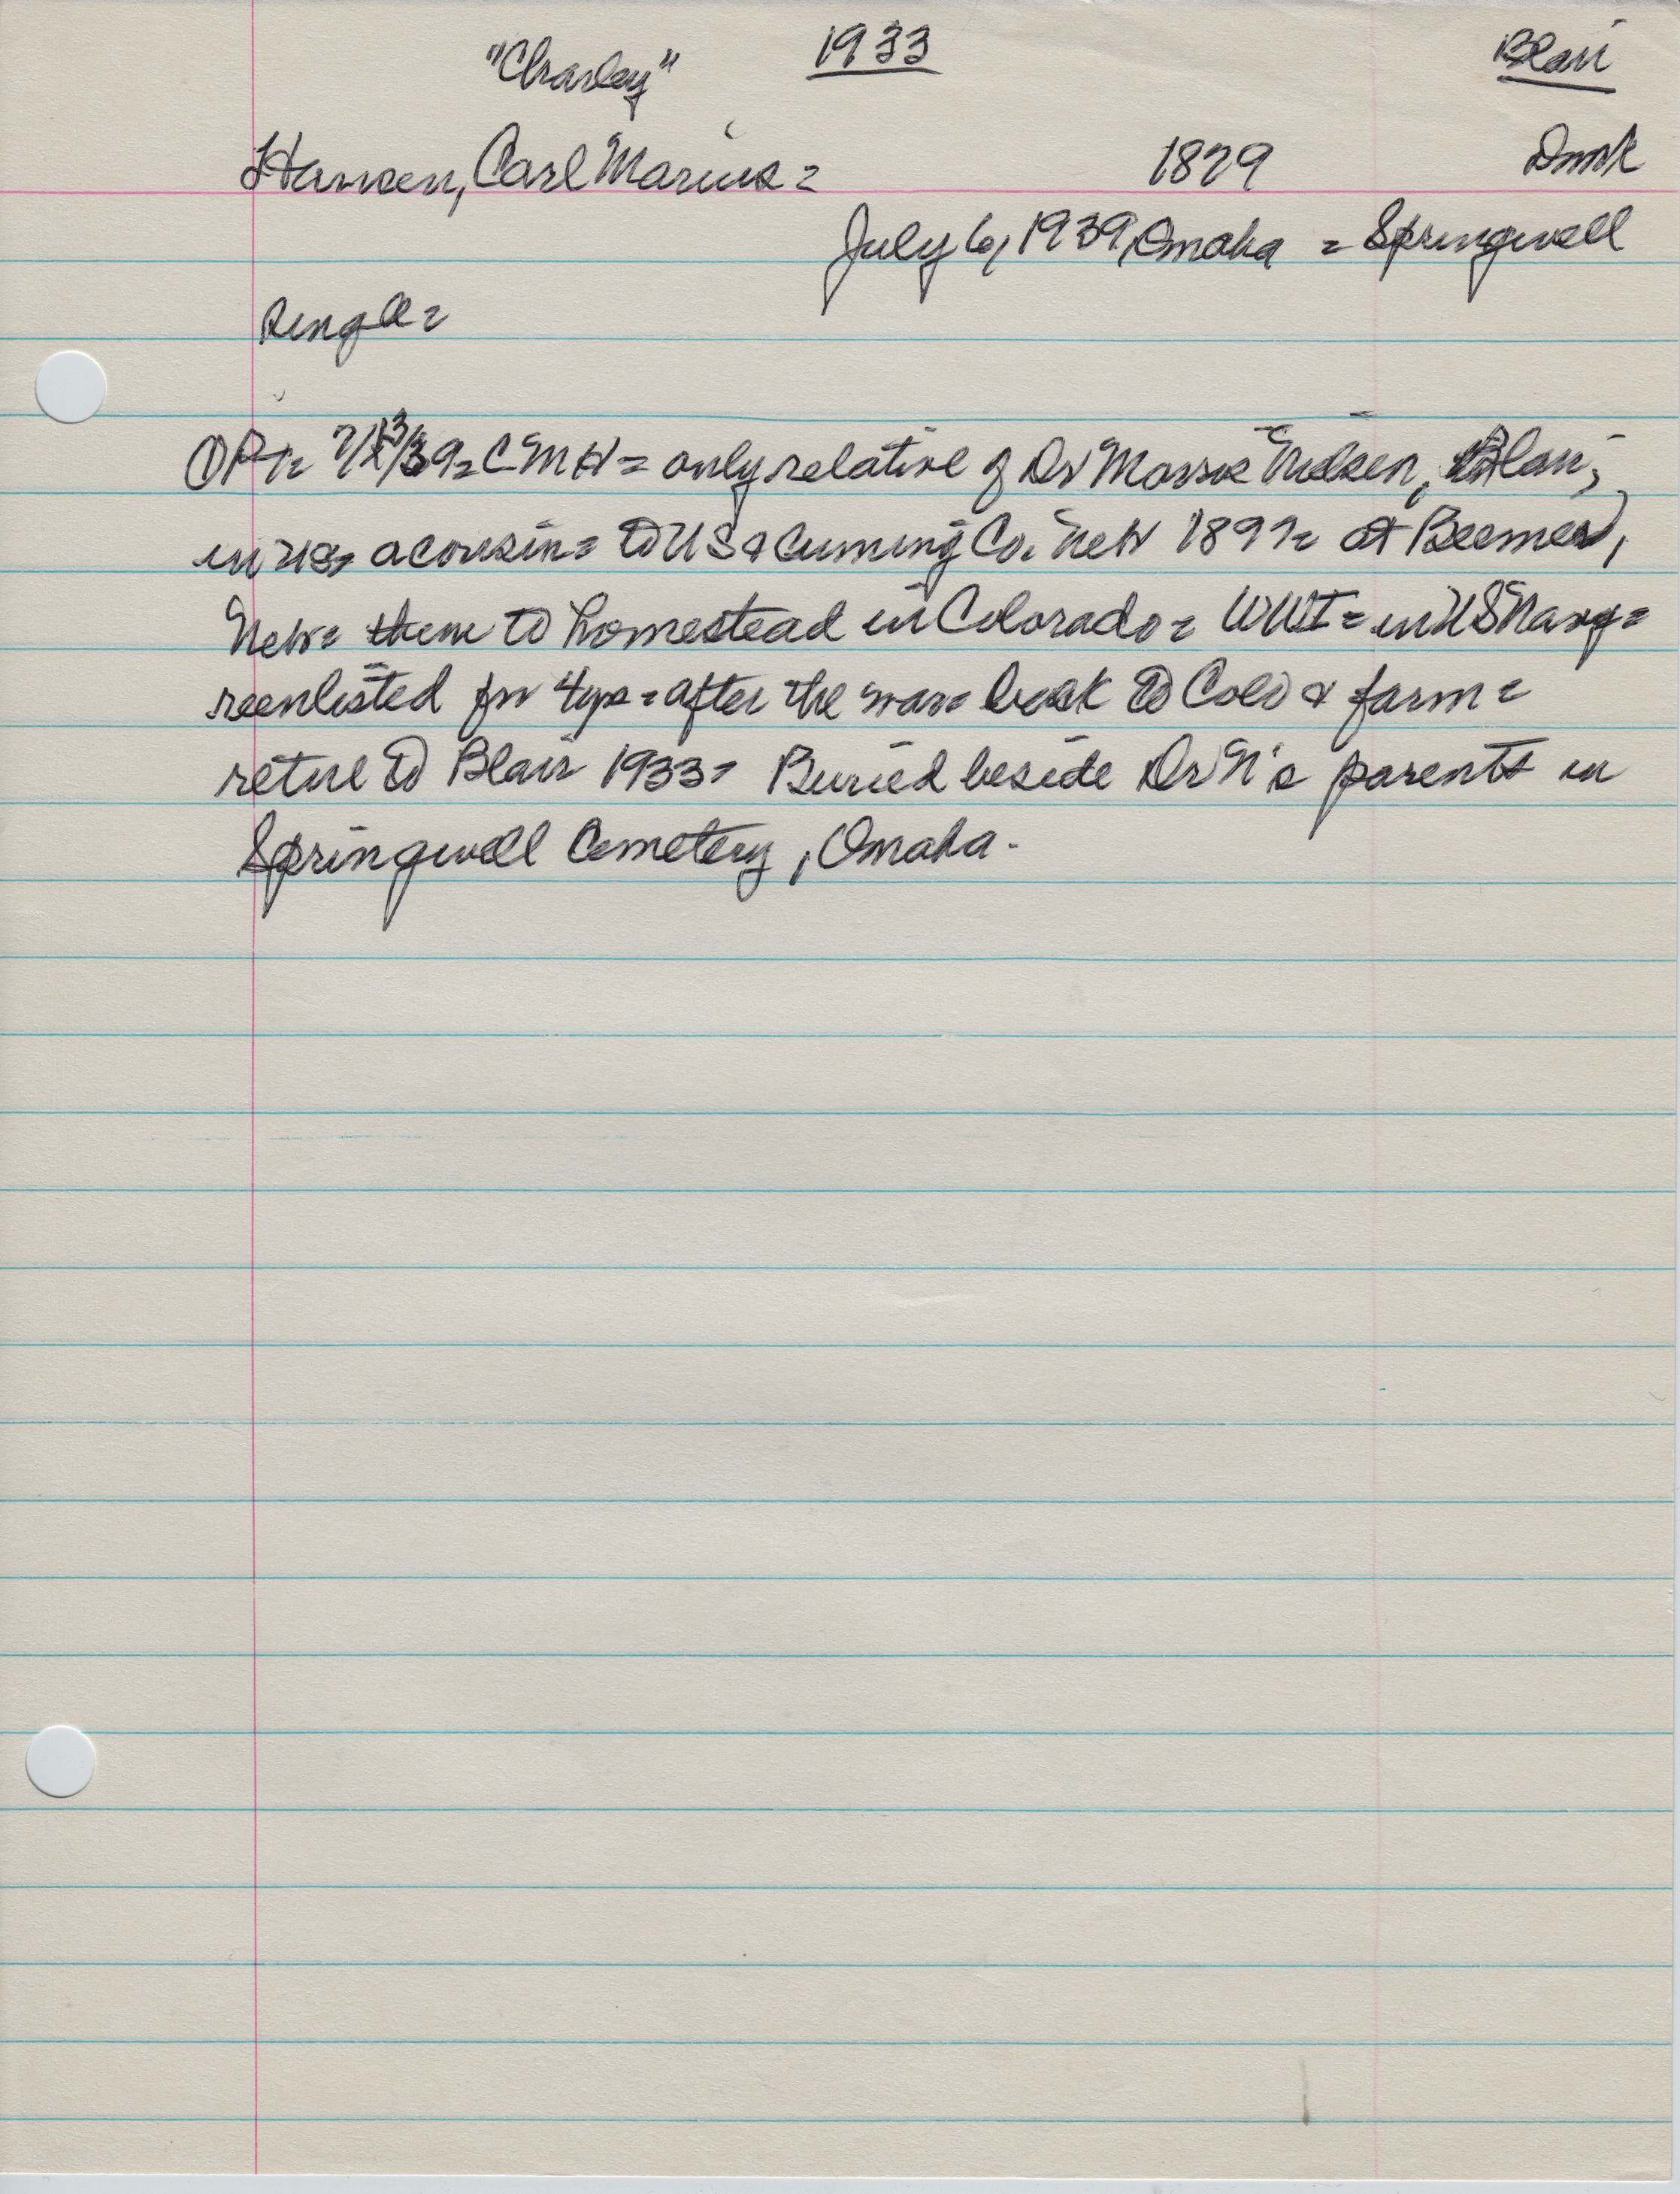 "Charley" 1933 Blair
Hansen, Carl Marius = 1879 Dmk
July 6, 1939, Omaha = Springwell
Single =
7/13/39 = CMH = only relative of Dr Morris Nielsen, Blair,
in US, a cousin = to US & Cuming Co. Nebr 1897 = at Beemer,
Nebr = then to homestead in Colorado = WWI = in US Navy =
reenlisted for 4 yrs = after the war = back to Colo & farm =
retire to Blair 1933 = Buried beside Dr N's parents in
Springwell Cemetery, Omaha.